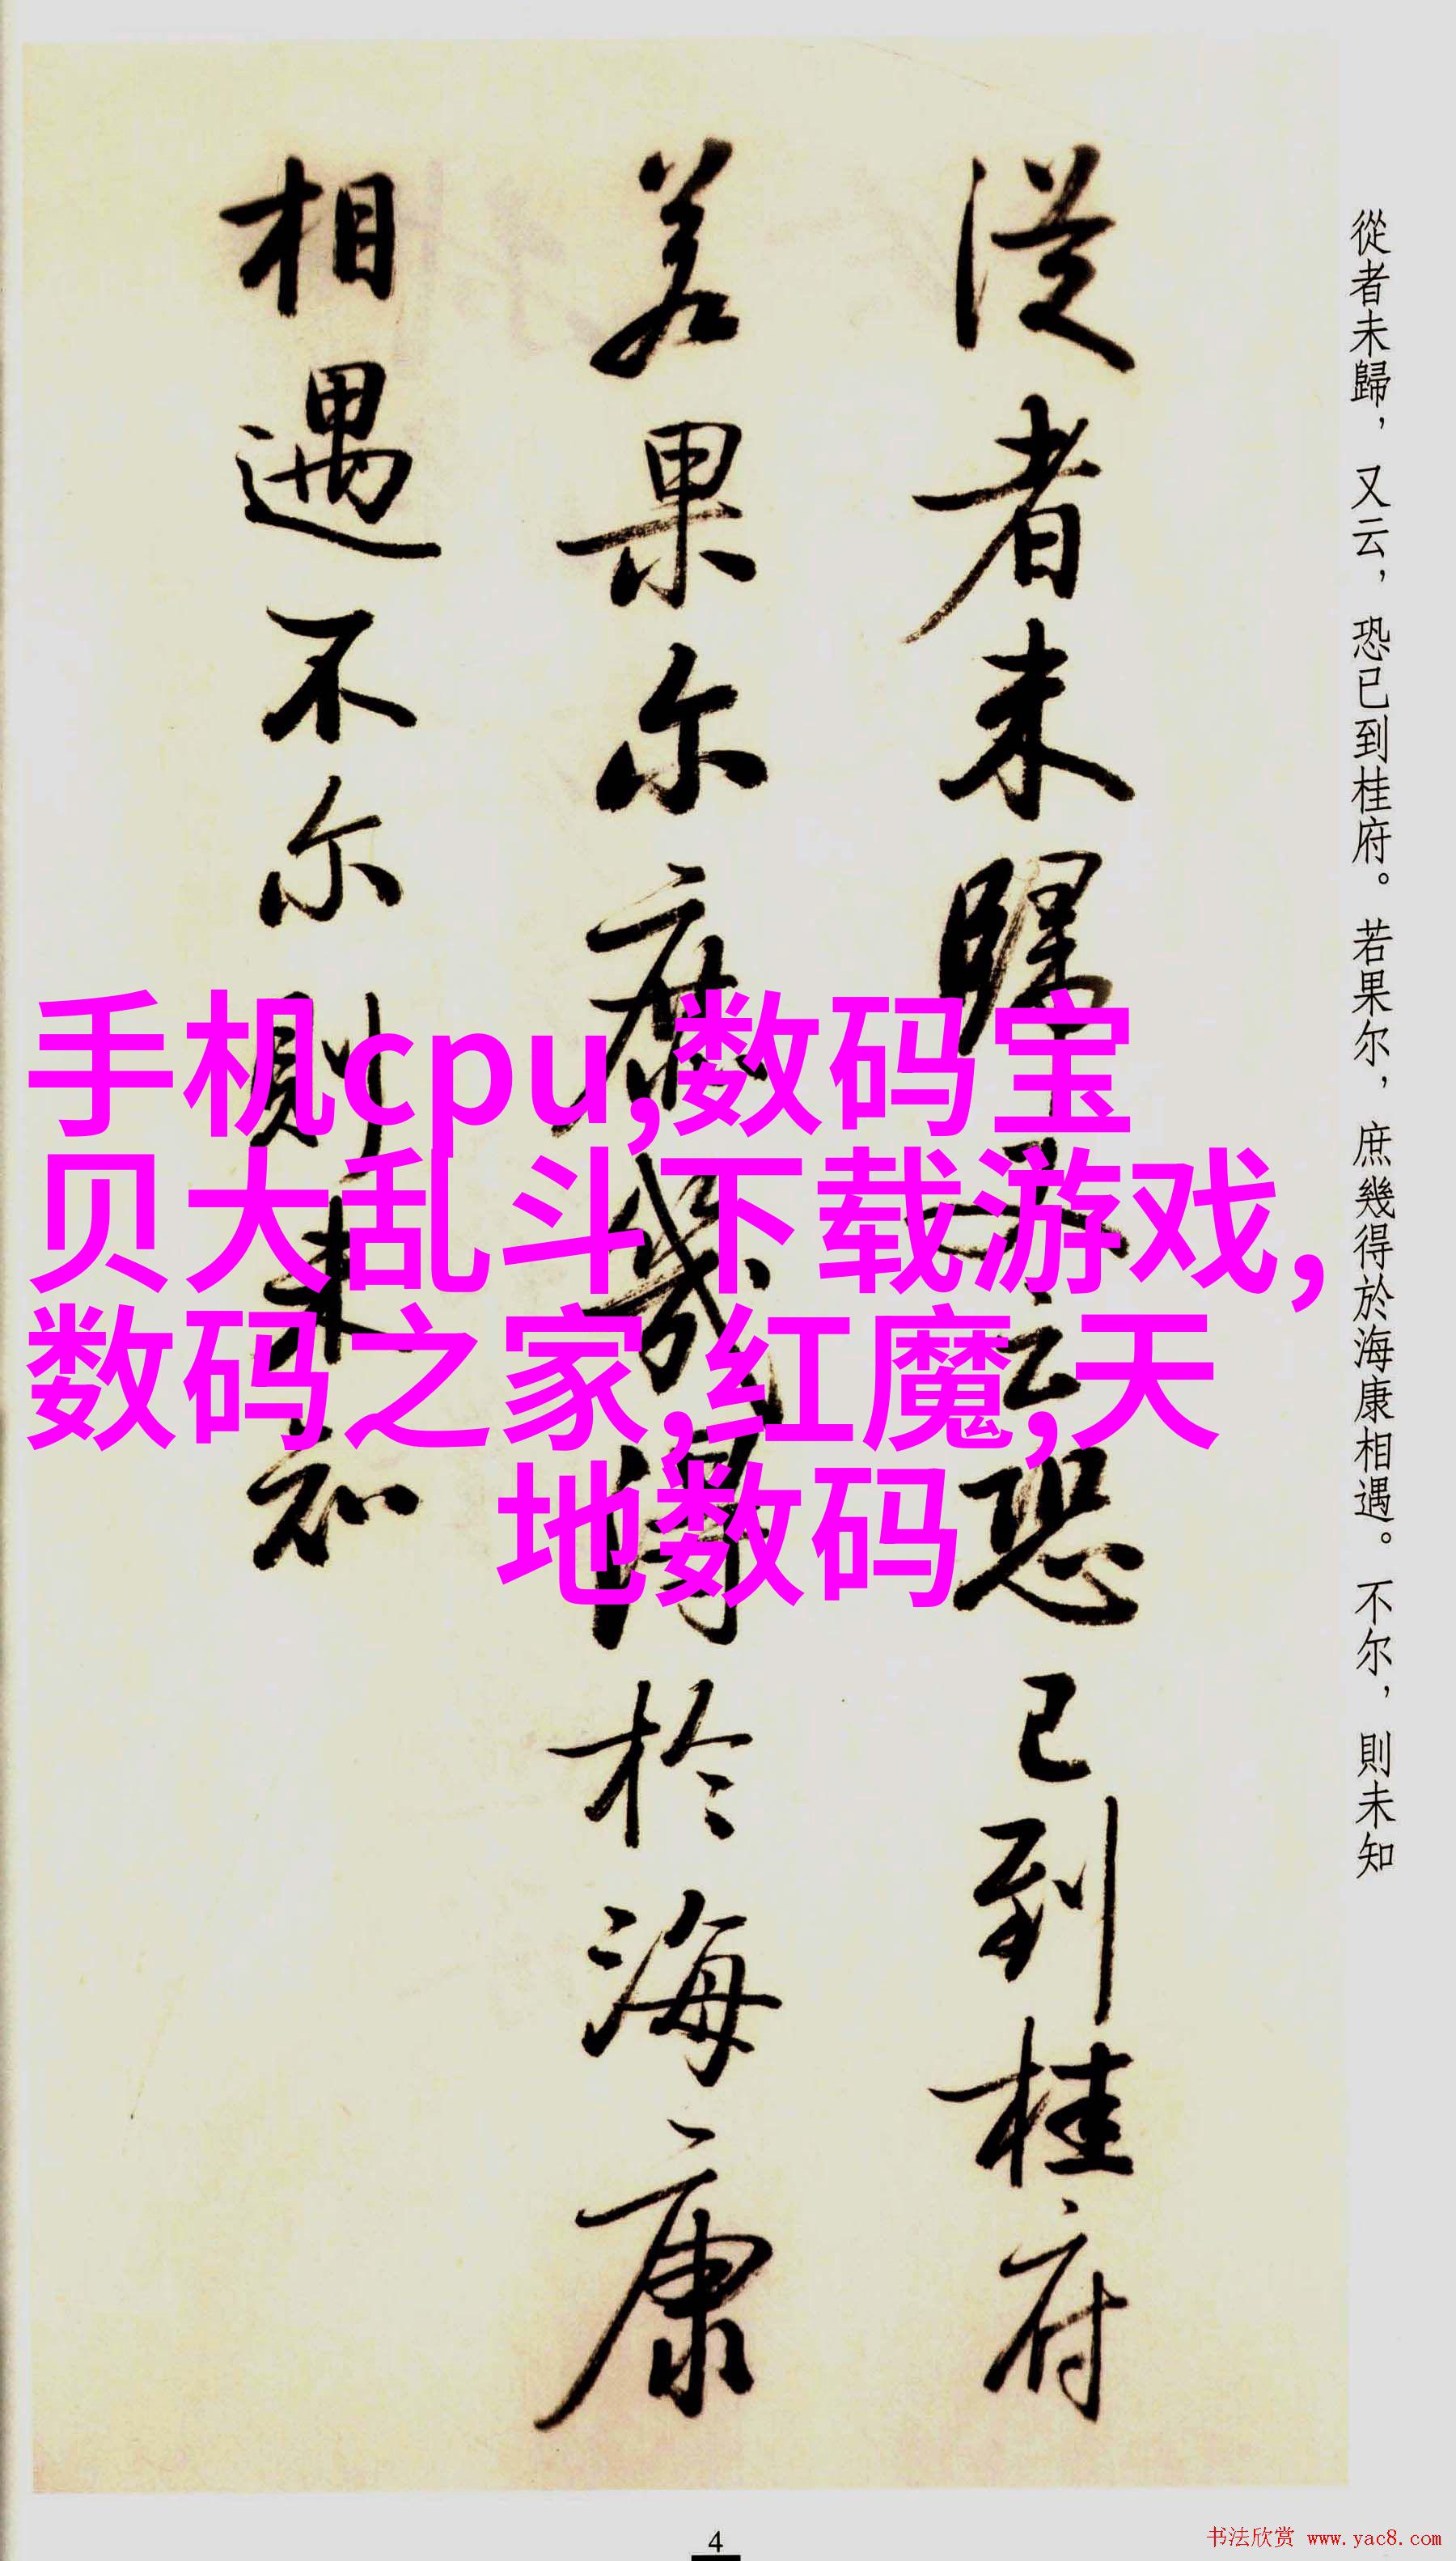 從者未歸，又云，恐已到桂府。若果尔，庶幾得於海康相遇。不尔，則未知
從者未歸又云恐已到桂府
若果尔庶幾得於海康
相遇不尔則未知
手机cpu,数码宝
贝大乱斗下载游戏,
数码之家,红魔,天
地数码
4
书法欣赏 www.yac8.com